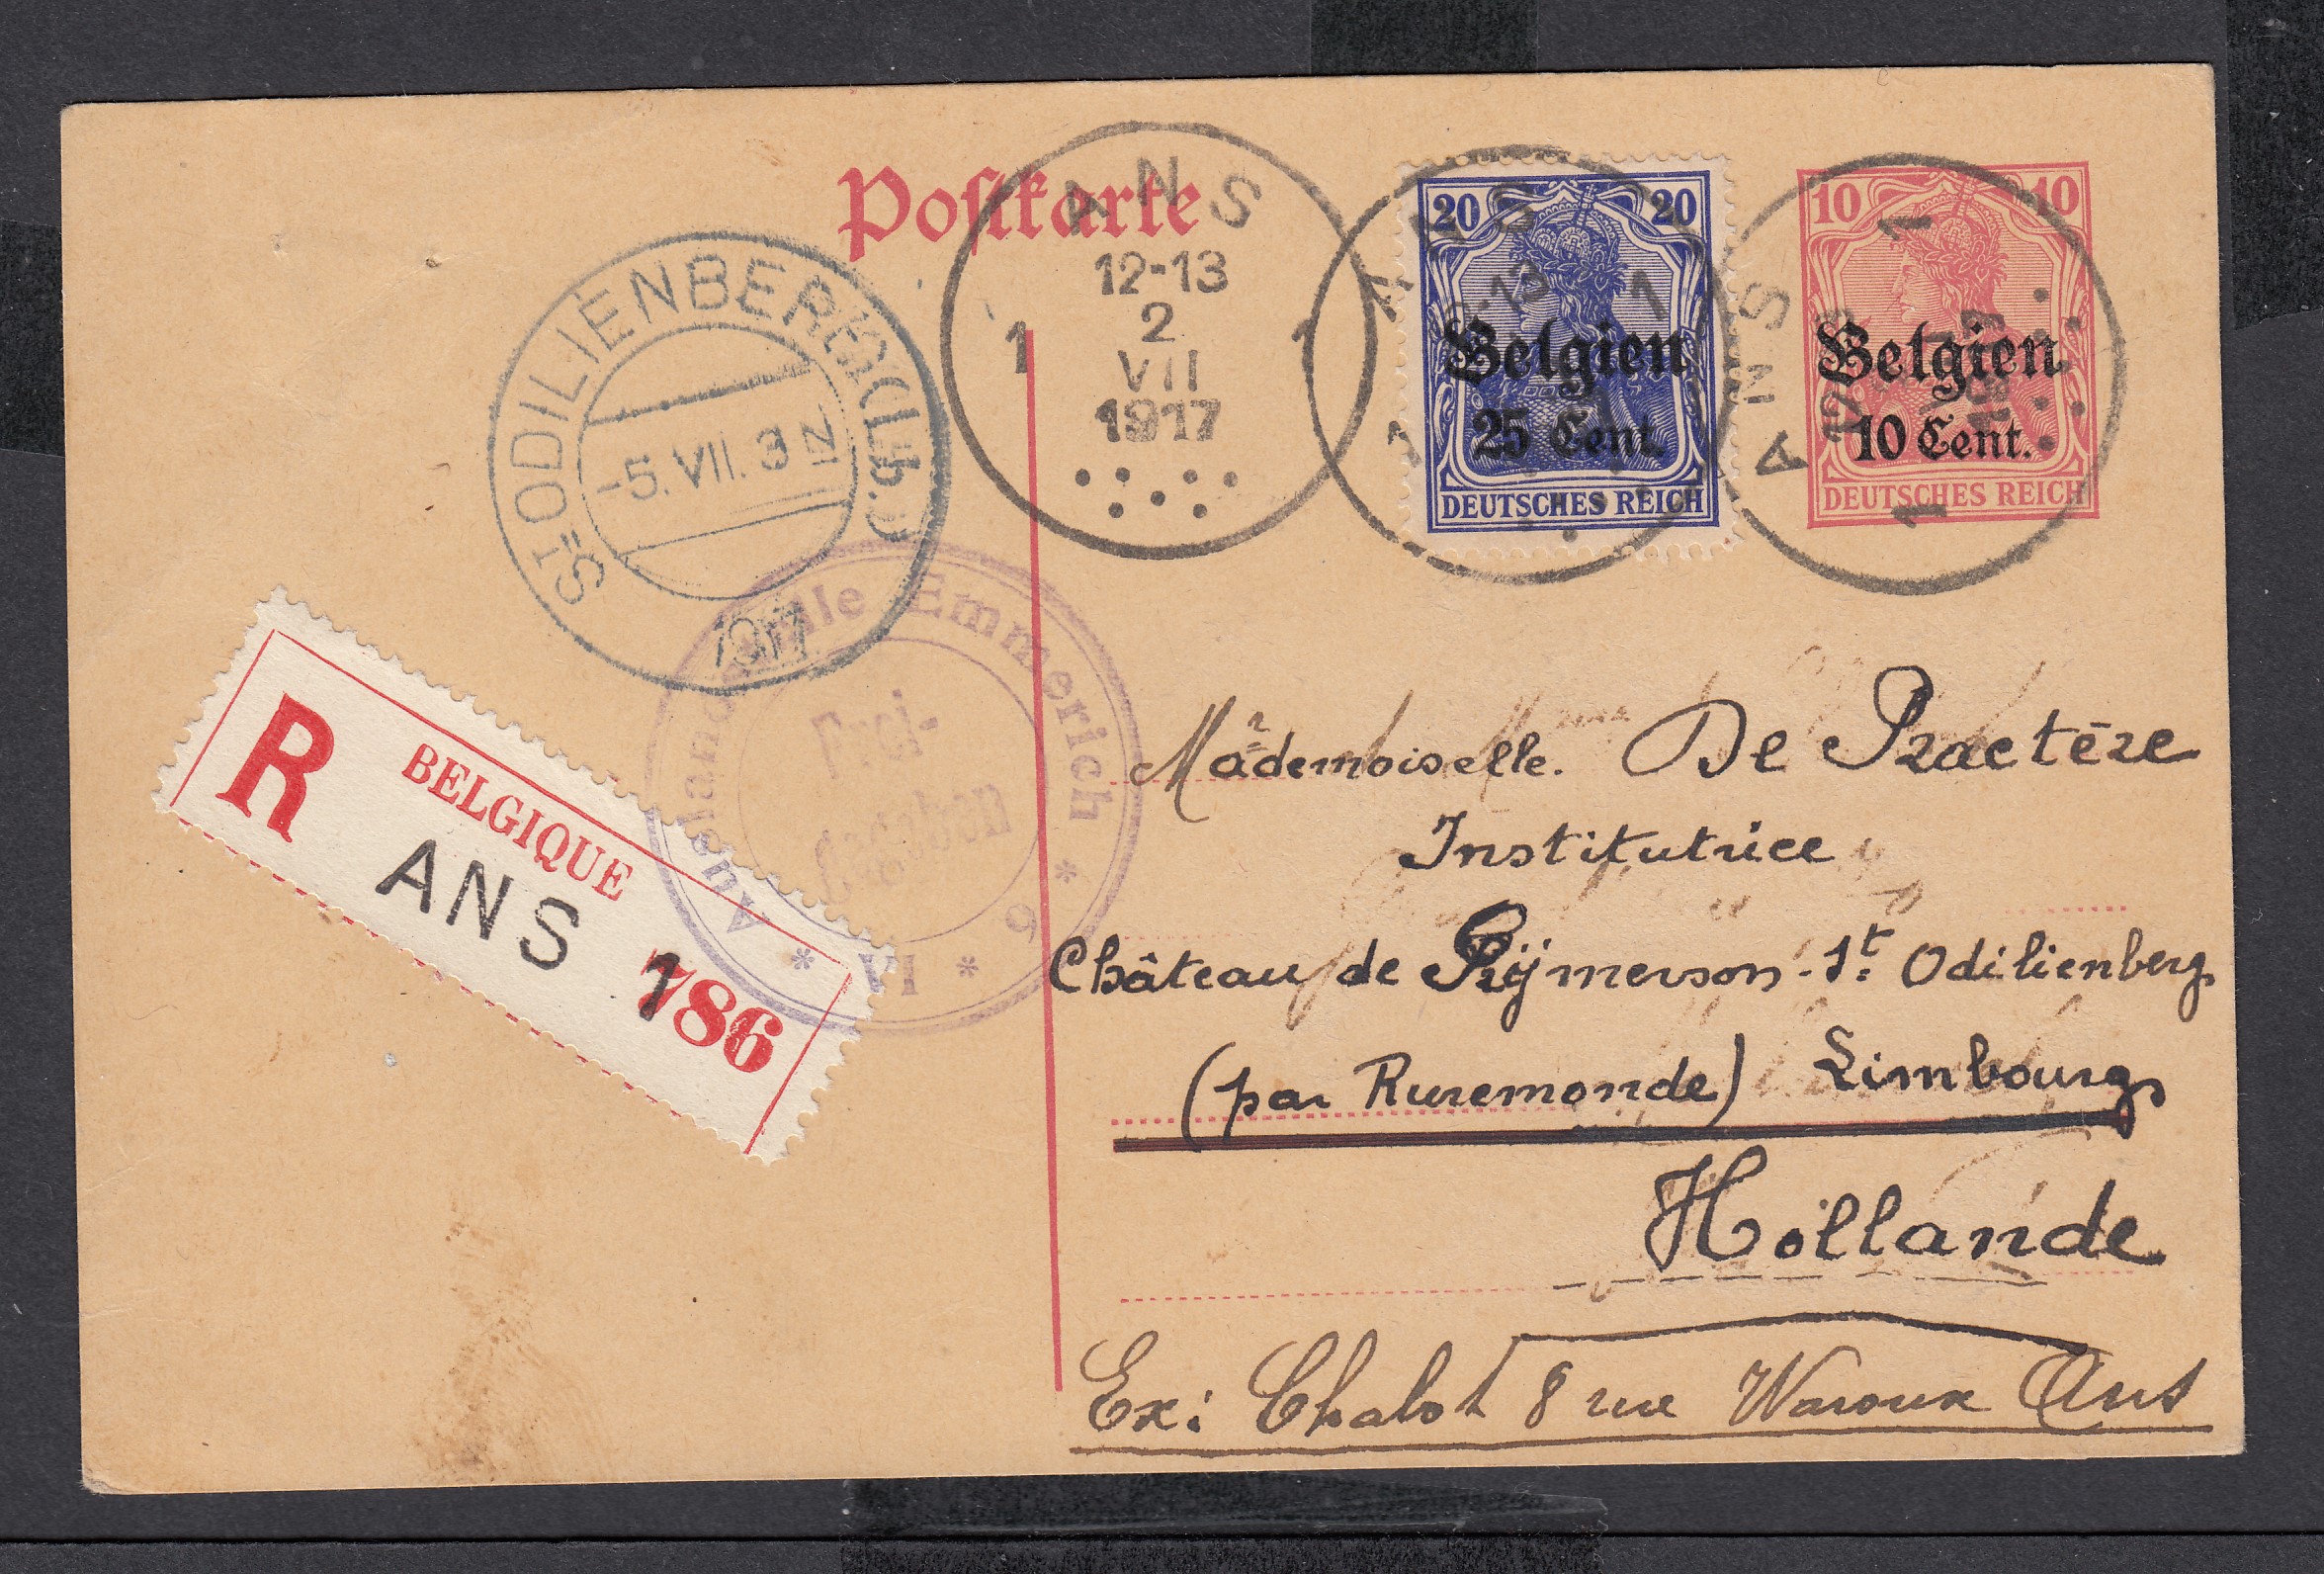 Postkarte
ANS
12-13
2
VII
1917
1 1
ANS
1 1
20 20
Belgien
25 Cent.
DEUTSCHES REICH
ANS
1 1
10 10
Belgien
10 Cent.
DEUTSCHES REICH
ST-ODILIENBERG (Lb.)
-5.VII. 3 N
1917
Auslandsstelle Emmerich
Frei-
gegeben
* VI * 6 *
R BELGIQUE
ANS 1
786
Mademoiselle. De Praetère
Institutrice
Château de Rÿmerson - St. Odilienberg
(par Ruremonde) Limbourg
Hollande
Ex: Chalot 8 rue Waroux Ans